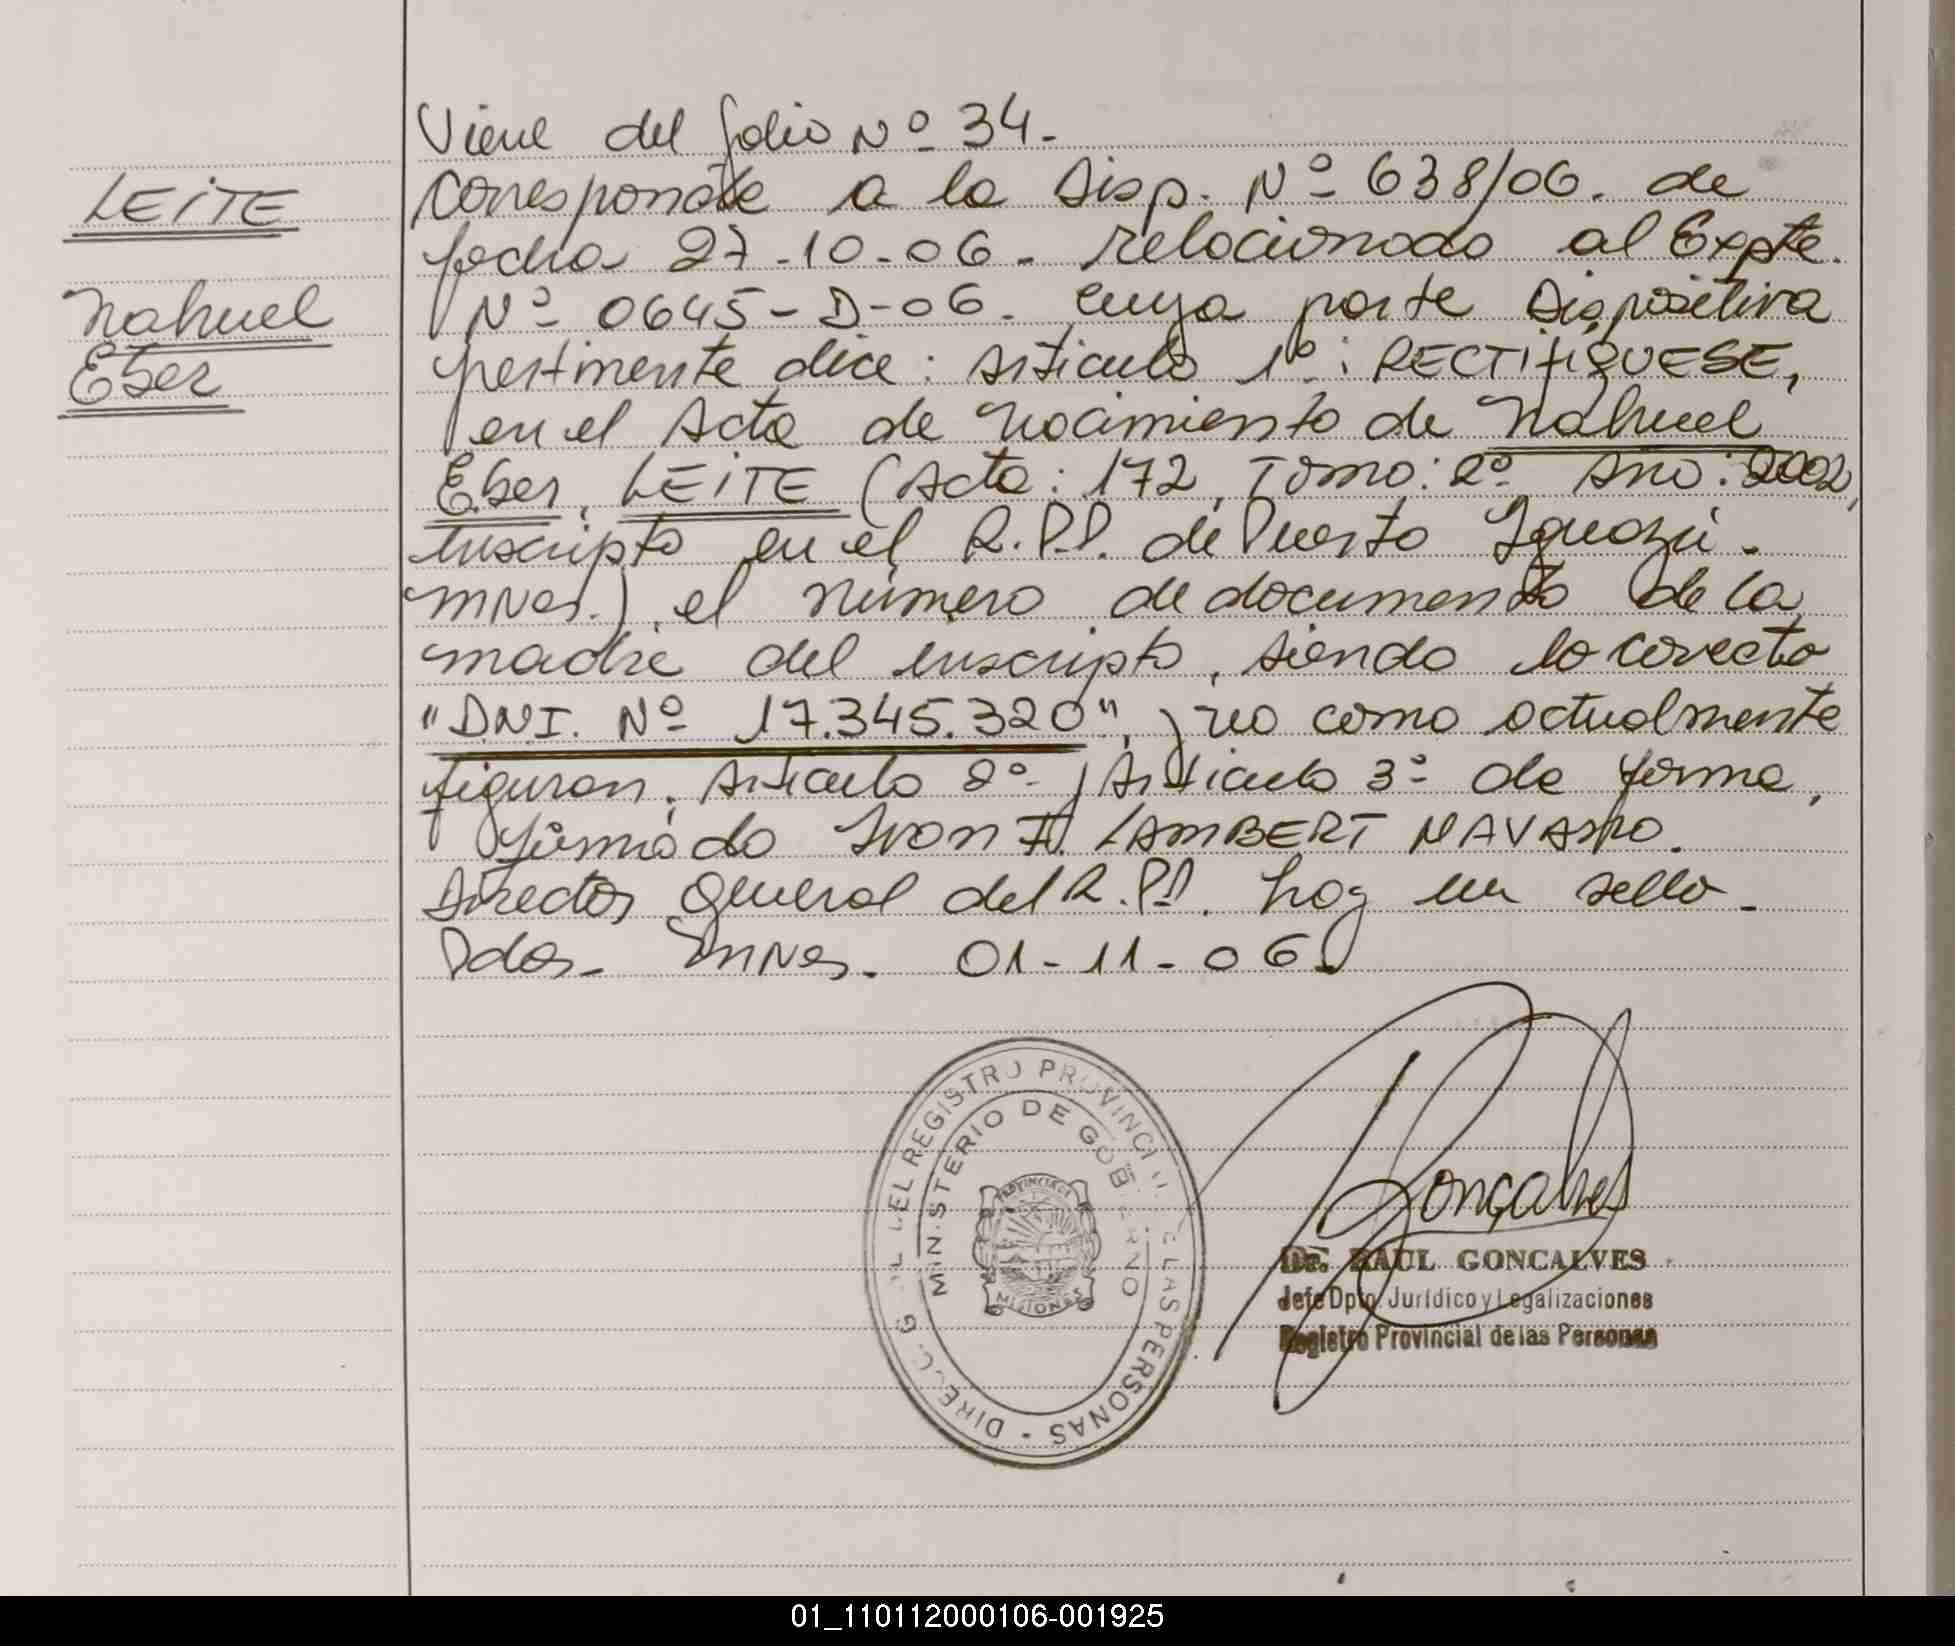 LEiTE
Nahuel
Eber
Viene del folio Nº 34.
Corresponde a la Disp. Nº 638/06. de
fecha 27-10-06. relacionado al Expte.
Nº 0645-D-06. cuya parte Dispositiva
pertinente dice: Articulo 1º: RECTIFIQUESE,
en el Acta de Nacimiento de Nahuel
Eber, LEiTE (Acta: 172, Tomo: 2º Año: 2002,
inscripto en el R.P.P. de Puerto Iguazú.
MNes.), el número de documento de la
madre del inscripto, siendo lo correcto
"D.N.I. Nº 17.345.320", y no como actualmente
figuran. Articulo 2º y Articulo 3º de forma,
firmado Ivon F. LAMBERT NAVARRO.
Director General del R.P.P. hay un sello.
Pdas. MNes. 01-11-06.
DIREC. GRAL DEL REGISTRO PROVINCIAL DE LAS PERSONAS -
MINISTERIO DE GOBIERNO
PROVINCIA DE
MISIONES
Goncalves
Dr. RAUL GONCALVES
Jefe Dpto. Jurídico y Legalizaciones
Registro Provincial de las Personas
01_110112000106-001925